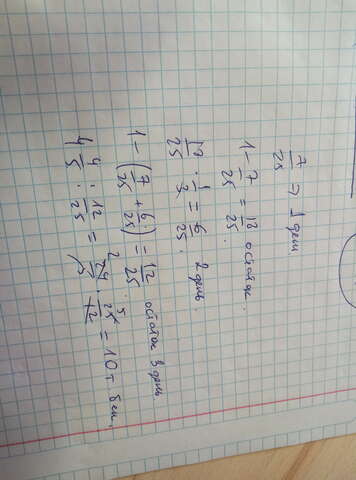 7/25 → 1 день
1 - 7/25 = 18/25 остаток.
18/25 · 1/3 = 6/25. 2 день.
1 - (7/25 + 6/25) = 12/25 остаток 3 день
4 4/5 : 12/25 = 24/5 · 25/12 = 10 т